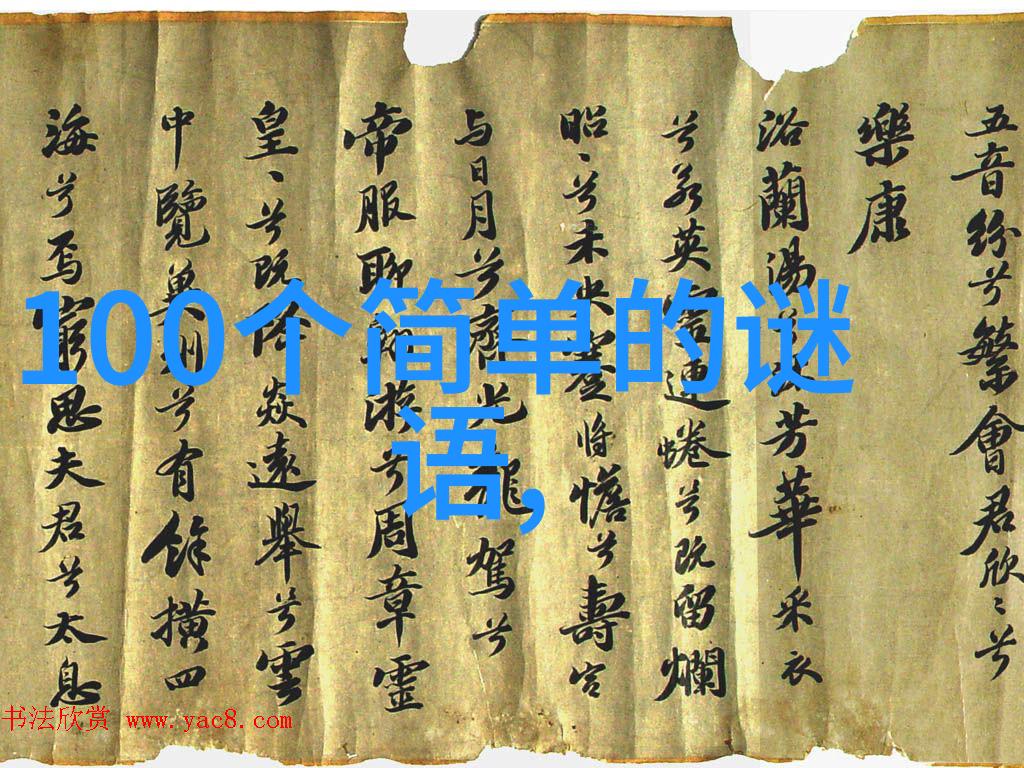 五音纷兮繁會君欣〻兮
樂康
浴蘭湯芳華采衣
兮若英連蜷兮既留爛
昭〻兮未央蹇将憺兮壽宫
与日月兮齊光龍駕兮
帝服聊翱游兮周章靈
皇〻兮既降焱遠舉兮雲
中覽兮有餘横四
海兮焉窮思夫君兮太息
100个简单的谜
语,
书法欣赏 www.yac8.com